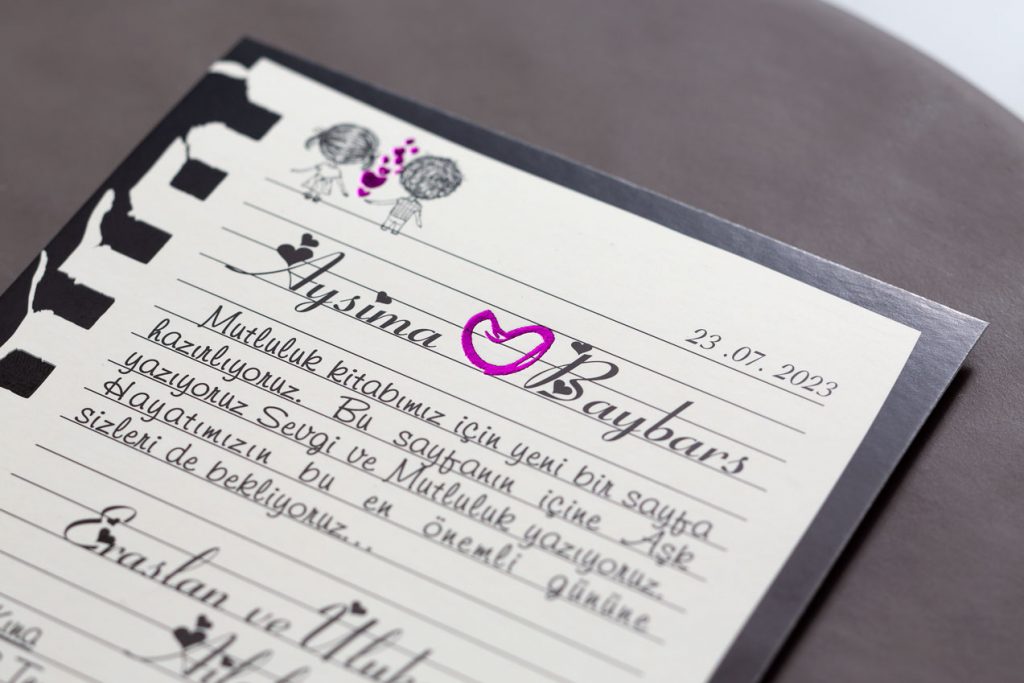 23.07.2023
Aysima Baybars
Mutluluk kitabımız için yeni bir sayfa
hazırlıyoruz. Bu sayfanın içine Aşk
yazıyoruz Sevgi ve Mutluluk yazıyoruz.
Hayatımızın bu en önemli gününe
sizleri de bekliyoruz...
Eraslan ve
Kına